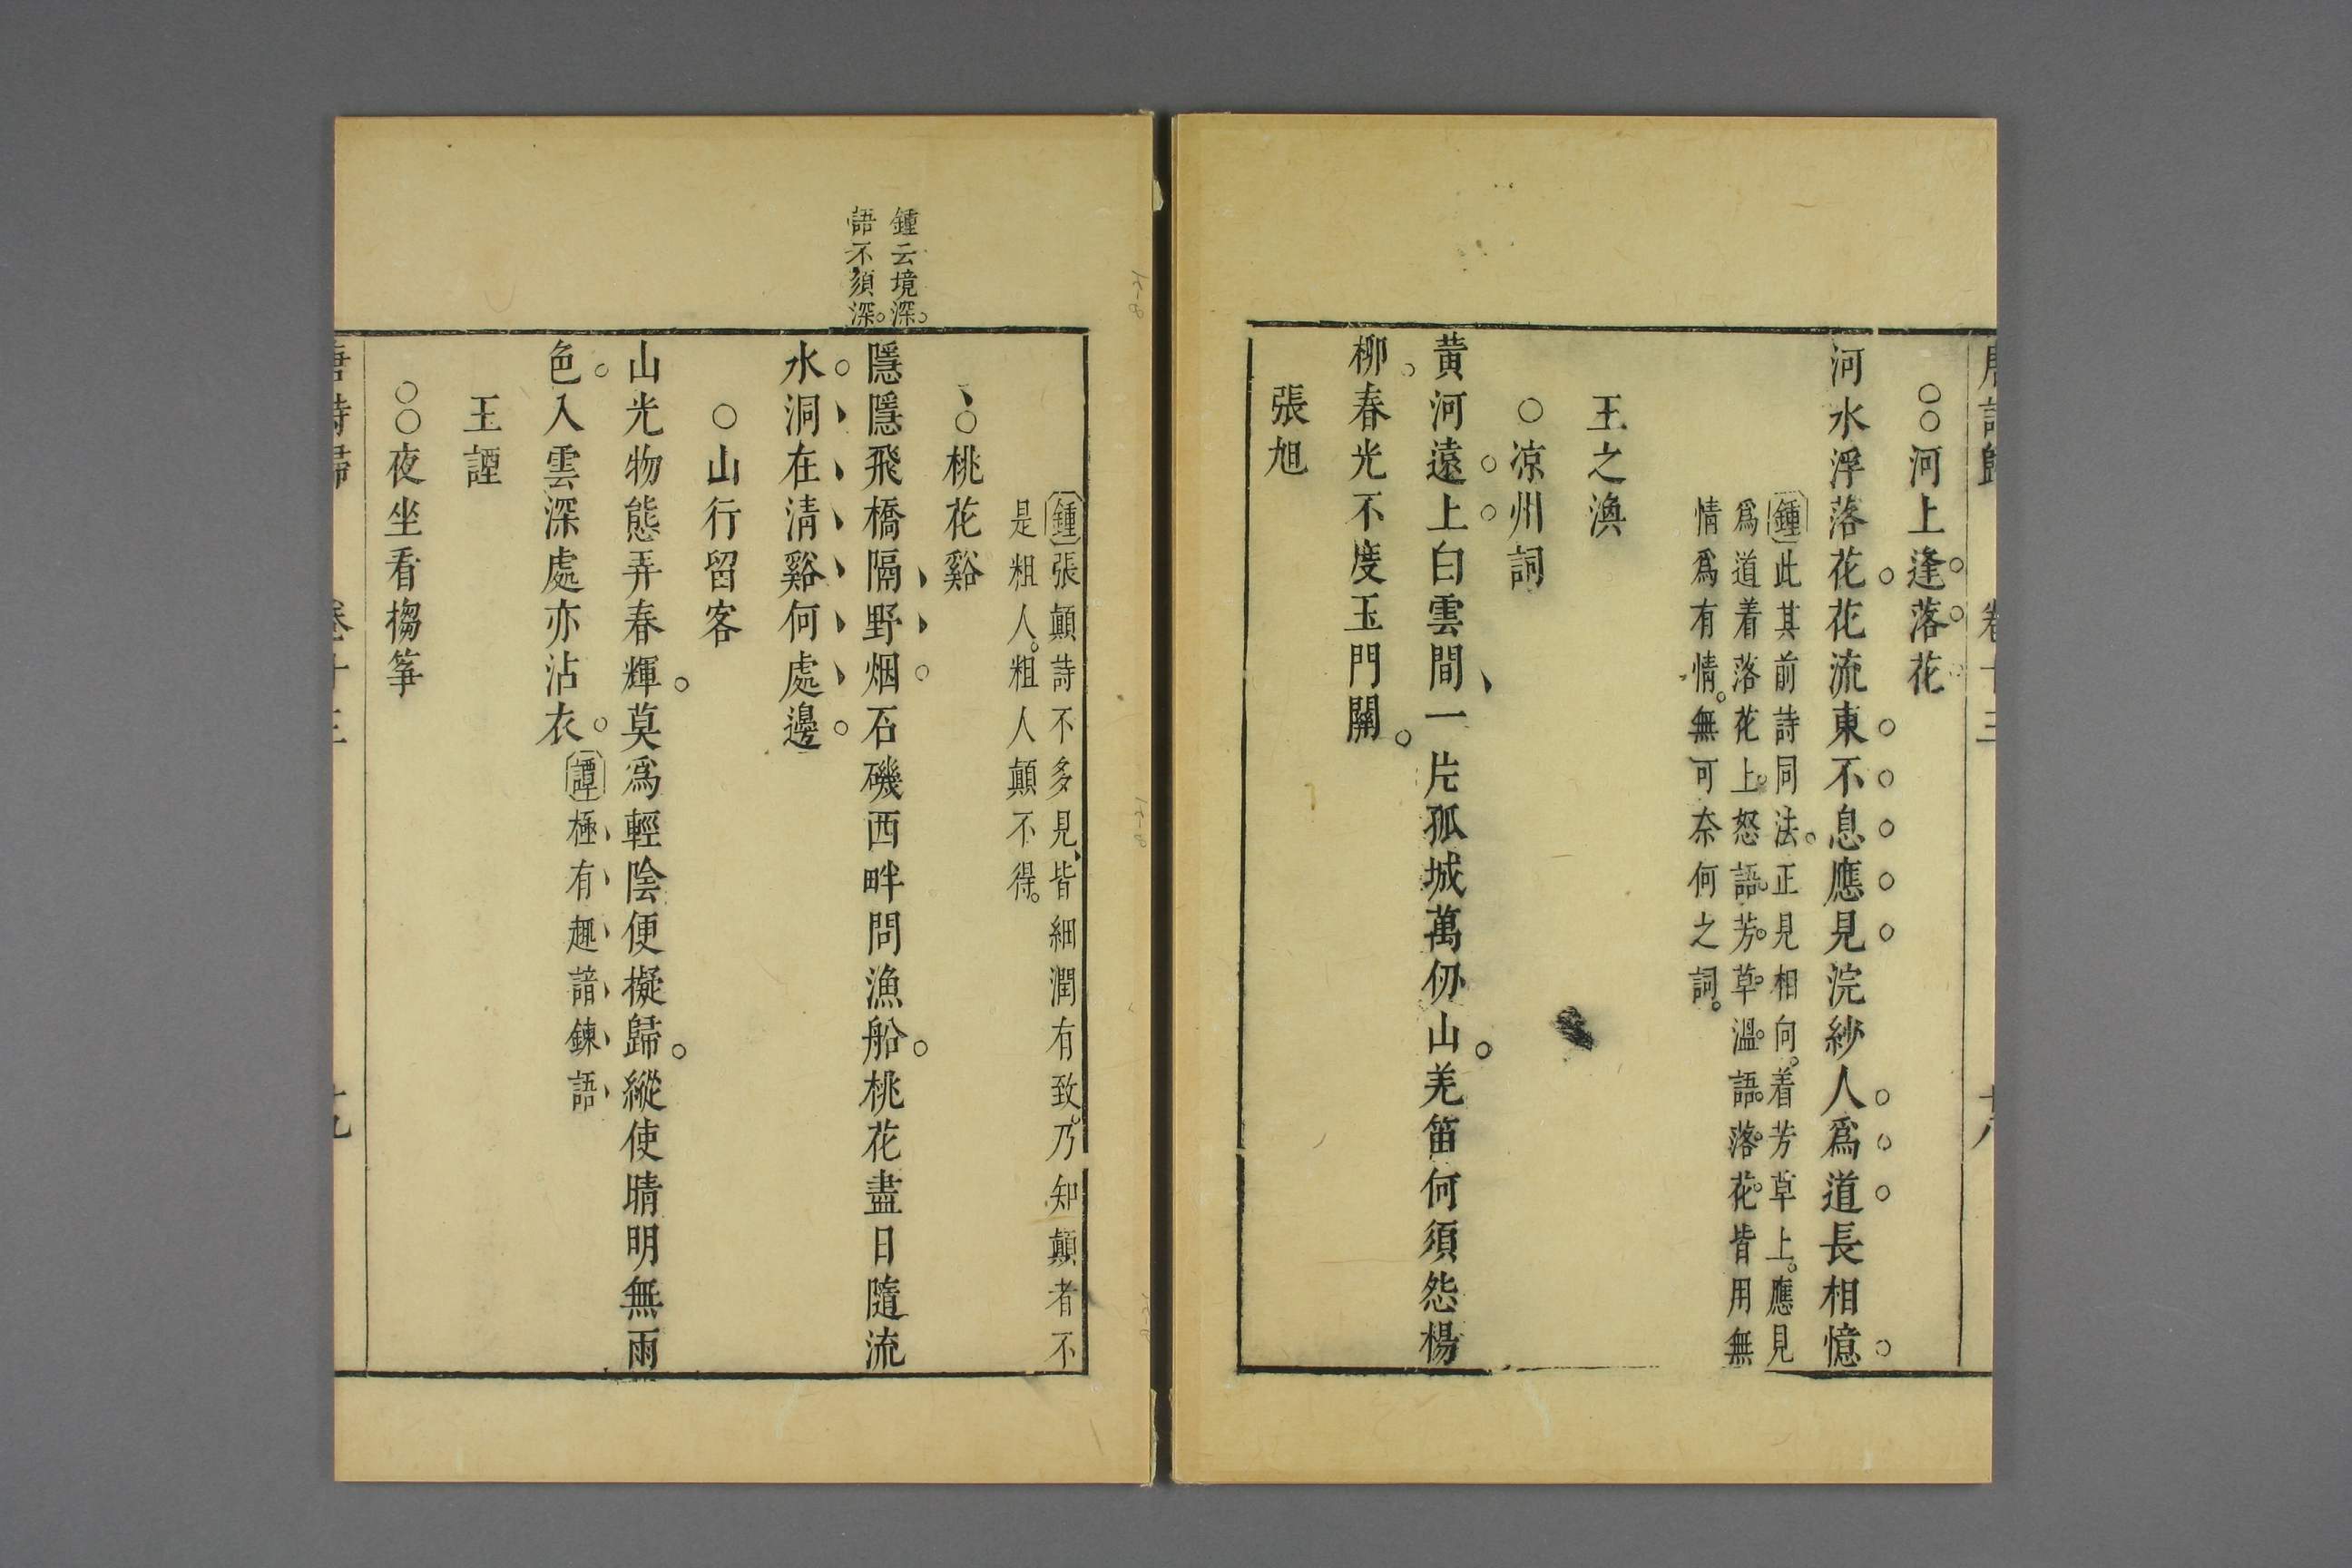 唐詩歸 卷十三 十八
河上逢落花
河水浮落花花流東不息應見浣紗人爲道長相憶
鍾此其前詩同法正見相向着芳草上應見
爲道着落花上怒語芳草溫語落花皆用無
情爲有情無可奈何之詞
王之渙
凉州詞
黃河遠上白雲間一片孤城萬仞山羌笛何須怨楊
柳春光不度玉門關
張旭
鍾張顛詩不多見皆細潤有致乃知顛者不
是粗人粗人顛不得
桃花谿
鍾云境深
語不須深
隱隱飛橋隔野烟石磯西畔問漁船桃花盡日隨流
水洞在清谿何處邊
山行留客
山光物態弄春輝莫爲輕陰便擬歸縱使晴明無雨
色入雲深處亦沾衣譚極有趣諳鍊語
王諲
夜坐看搊筝
唐詩歸 卷十三 十九